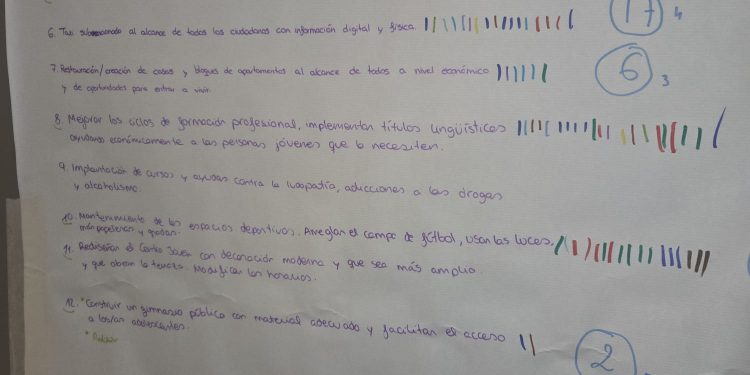 6. Taxi subvencionado al alcance de todos los ciudadanos con información digital y física. 17 4
7. Restauración/creación de casas y bloques de apartamentos al alcance de todos a nivel económico 6 3
y de oportunidades para entrar a vivir.
8. Mejorar los ciclos de formación profesional, implementar títulos lingüísticos
ayudando económicamente a las personas jóvenes que lo necesiten.
9. Implantación de cursos y ayudas contra la ludopatía, adicciones a las drogas
y alcoholismo.
10. Mantenimiento de los espacios deportivos. Arreglar el campo de fútbol, usar las luces,
más papeleras y
11. Rediseñar el Centro Joven con decoración moderna y que sea más amplio
y que abran la terraza. Modificar los horarios.
12. Construir un gimnasio público con material adecuado y facilitar el acceso
a los/as adolescentes. 2